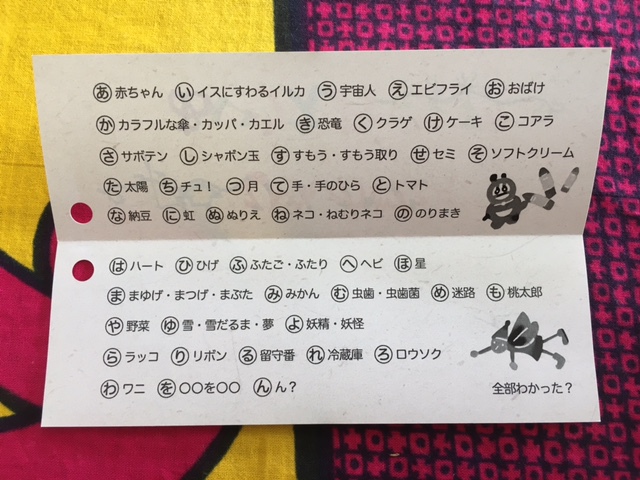 あ 赤ちゃん い イスにすわるイルカ う 宇宙人 え エビフライ お おばけ
か カラフルな傘・カッパ・カエル き 恐竜 く クラゲ け ケーキ こ コアラ
さ サボテン し シャボン玉 す すもう・すもう取り せ セミ そ ソフトクリーム
た 太陽 ち チュ! つ 月 て 手・手のひら と トマト
な 納豆 に 虹 ぬ ぬりえ ね ネコ・ねむりネコ の のりまき
は ハート ひ ひげ ふ ふたご・ふたり へ ヘビ ほ 星
ま まゆげ・まつげ・まぶた み みかん む 虫歯・虫歯菌 め 迷路 も 桃太郎
や 野菜 ゆ 雪・雪だるま・夢 よ 妖精・妖怪
ら ラッコ り リボン る 留守番 れ 冷蔵庫 ろ ロウソク
わ ワニ を 〇〇を〇〇 ん ん?
全部わかった?